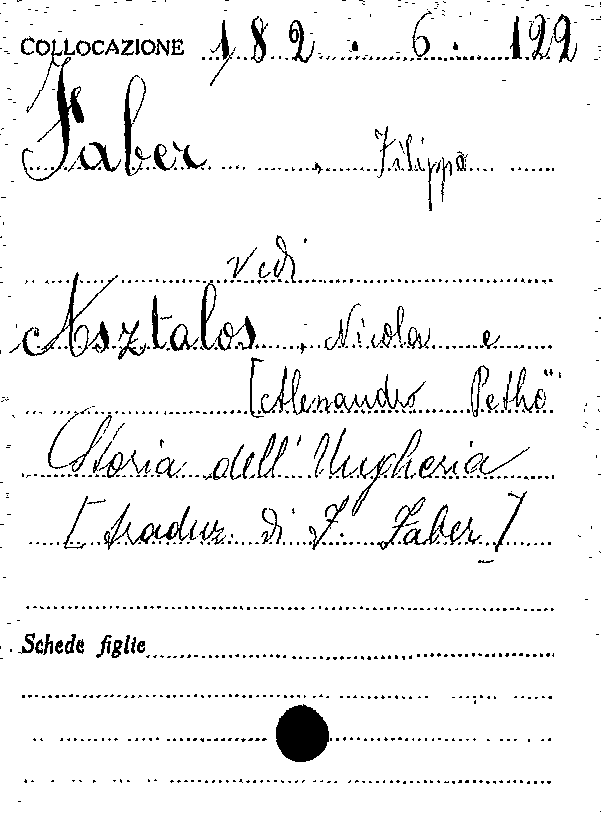 COLLOCAZIONE 182.6.122
Faber, Filippo
vedi
Asztalos, Nicola e
[Alessandro Pethö
Storia dell'Ungheria
[traduz. di F. Faber]
Schede figlie